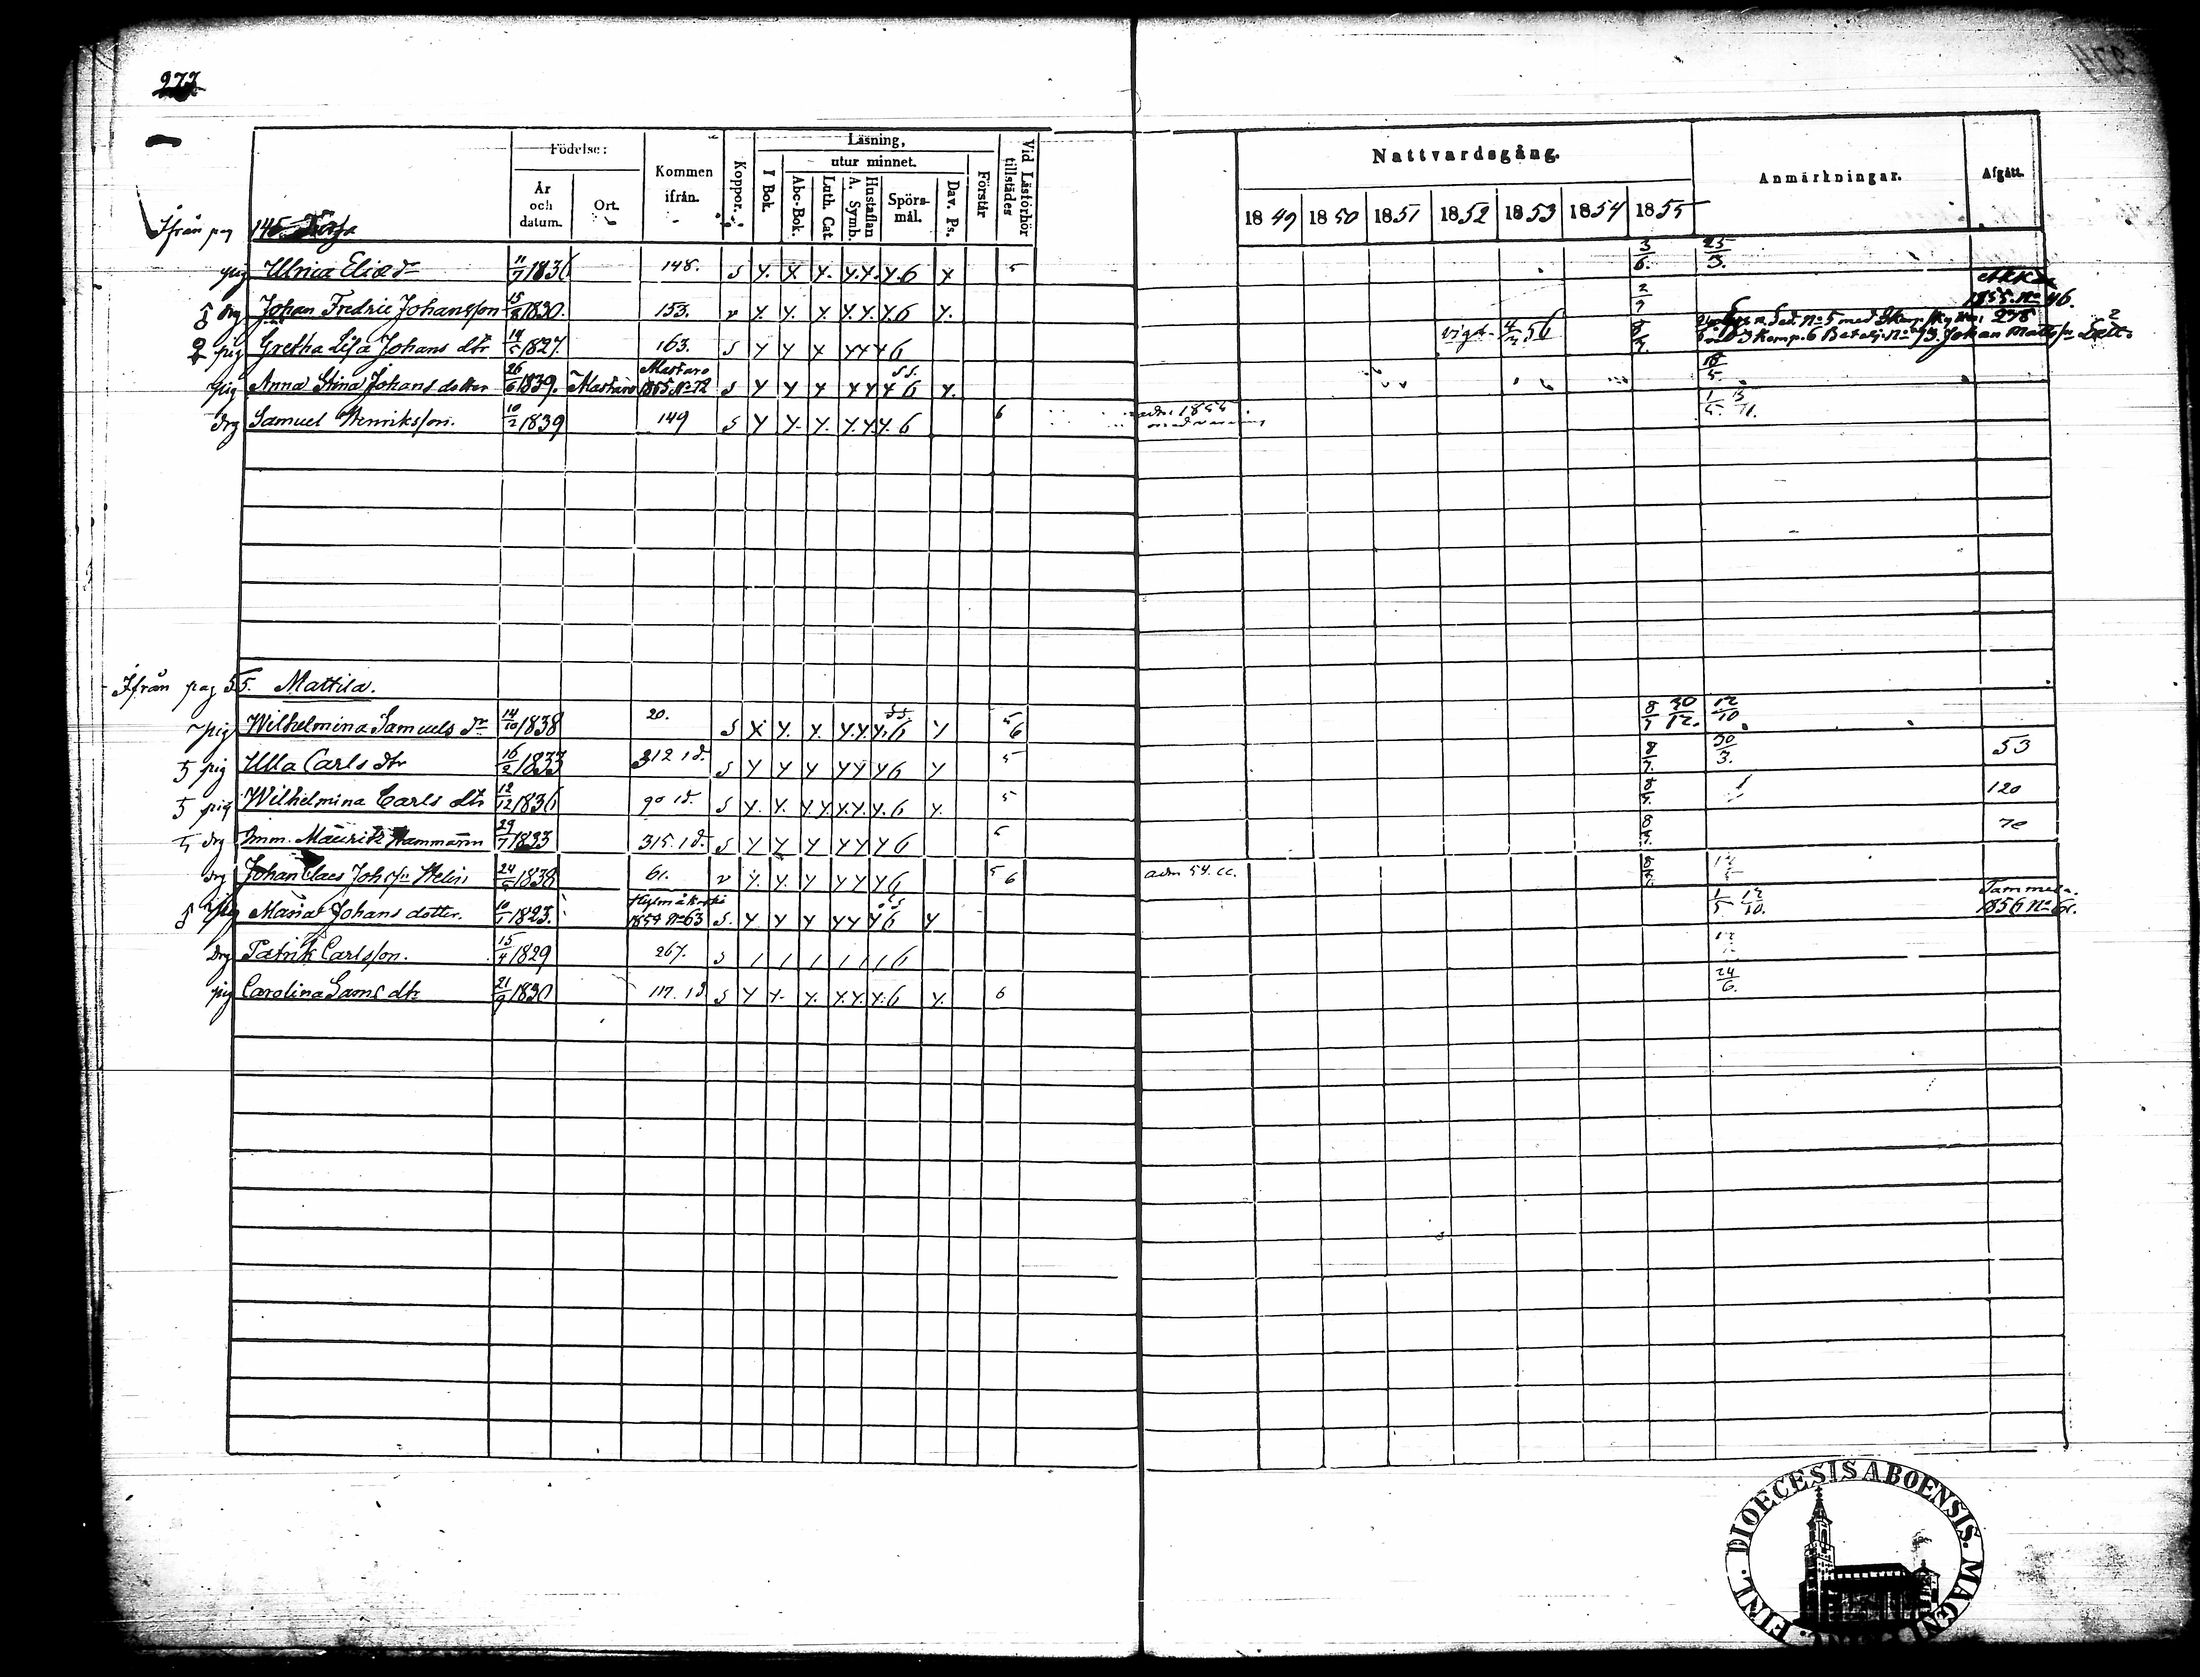 277
Födelse:
År och datum.
Ort.
Kommen ifrån.
Koppor.
Läsning,
I Bok.
utur minnet.
Abc-Bok.
Luth. Cat.
Hustaflan A. Symb.
Spörsmål.
Dav. Ps.
Förstår
Vid Läsförhör tillstädes
Nattvardsgång.
1849 1850 1851 1852 1853 1854 1855
Anmärkningar.
Afgått.
Ifrån pag 145
pig Ulrica Eliæ dr 11/7 1836 148. s y. y. y. y. y. y. 6 y 5 3/6. 25/3.
drg Johan Fredric Johansson 15/8 1830. 153. v y. y. y. y. y. y. 6 y. 2/9 1855. No 46.
pig Gretha Lisa Johans dtr 14/5 1827. 163. s y y y y y y 6 vigd. 4/7 56 8/7.
pig Anna Stina Johans dotter 26/6 1839. Maskuro Maskuro 1855 No 72 s y y y y y y 6 y. 18/5.
drg Samuel Henriksson. 10/2 1839 149 s y y. y. y. y. y. 6 6
Ifrån pag 55. Mattila.
pig Wilhelmina Samuels dr 14/10 1838 20. s y y. y. y. y. y. 6 y 5 6 8/7 30/12. 12/10
5 pig Ulla Carls dtr 16/2 1833 312 1 d. s y y y y y y 6 y 5 8/7. 30/3. 53
5 pig Wilhelmina Carls dtr 12/12 1836 90 1 d. s y. y. y y. y. y. y. 6 y. 5 8/7. 120
5 drg Imm. Mauritz Hammarén 29/7 1833 315. 1 d. s y y y y y y 6 5 8/7. 70
drg Johan Claes Johss n Helin 24/5 1838 61. v y. y. y y y y 6 5 6 adm 54. cc. 8/7.
pig Maria Johans dotter. 10/1 1823. 1854 No 63 s. y y y y y y 6 y 1/5 12/10. Tammela. 1856 No 61.
drg Patrik Carlsson. 15/4 1829 267. s 6
pig Carolina Sams dtr 21/9 1830 117. 1 d s y y. y. y. y. y. 6 y. 6 24/6.
DIOECESIS ABOENSIS. MAGNI DUC. FINL.